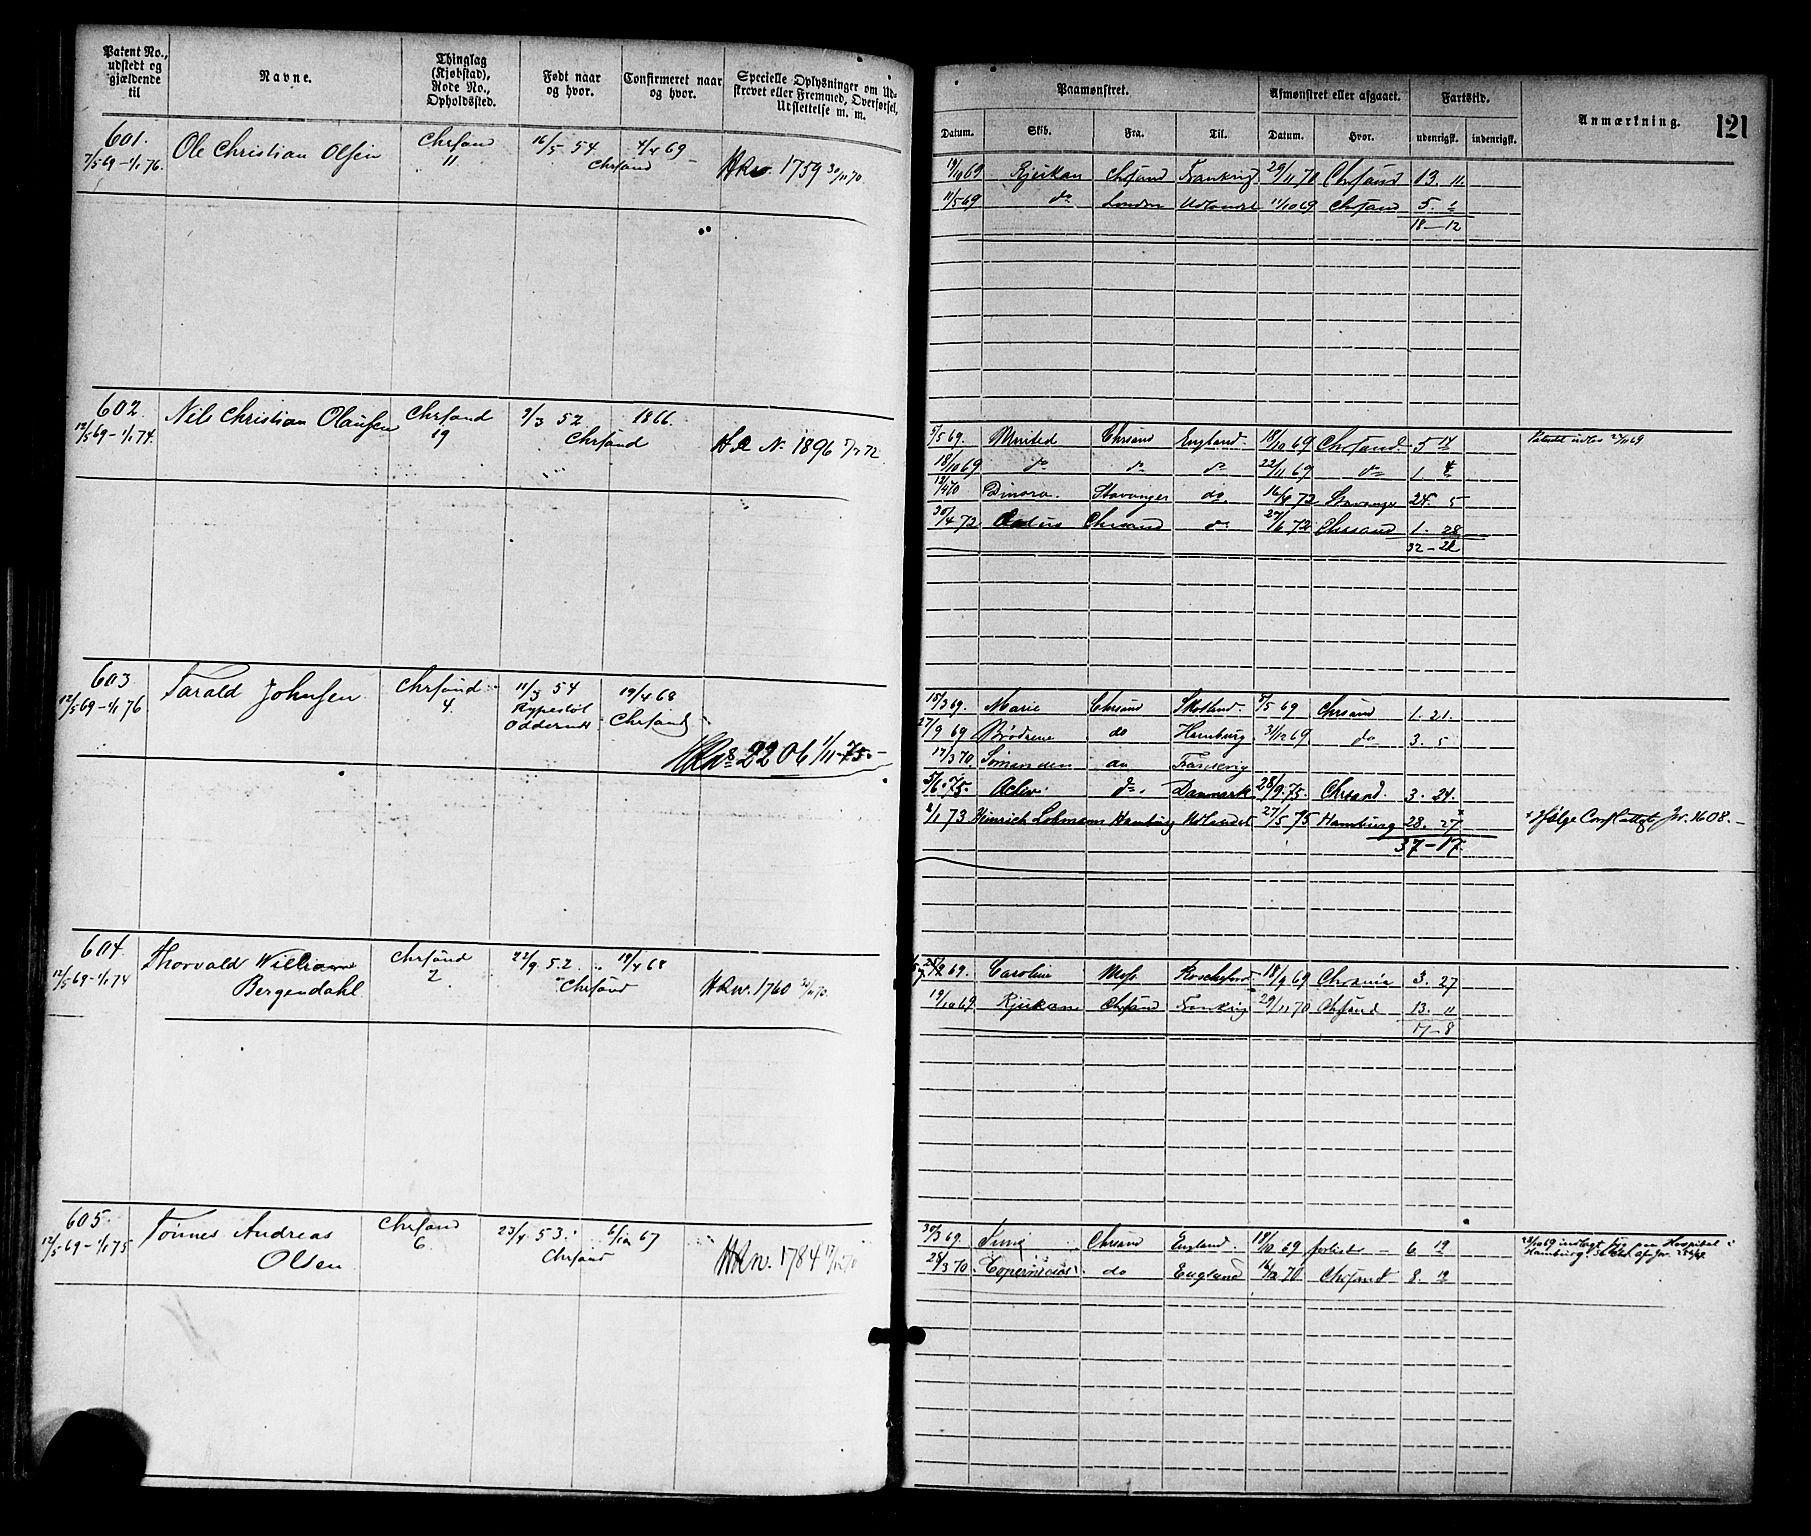 Patent No., udstedt og gjældende til
Navne.
Thinglag (Kjøbstad), Rode No., Opholdssted.
Født naar og hvor.
Confirmeret naar og hvor.
Specielle Oplysninger om Udskrevet eller Fremmed, Overførsel, Udslettelse m. m.
Paamønstret.
Afmønstret eller afgaaet.
Fartstid.
Anmærkning.
121
Datum. Skib. Fra. Til. Datum. Hvor. udenrigsk. indenrigsk.
601. Ole Christian Olsen Chrsand 16/5 54 4/4 69
7/5 69 - 1/1 76. 11 Chrsand 1759 30/11 70.
19/10 69 Rjukan Chrsand Frankrig 29/11 70 Chrsand 13. 11.
11/5 69 do London Udlandet 11/10 69 Chrsand 5. 1
18-12
602. Nils Christian Olausen Chrsand 9/3 52 1866.
12/5 69 - 1/1 74. 19 Chrsand No 1896 72
5/5 69. Chrsand England 18/10 69 Chrsand. 5 14
18/10 69 do do do 22/11 69 do 1. 4
12/4 70 Dinora. Stavanger do. 16/4 72 Stavanger 24. 5
30/4 72 Chrsand do 27/6 72 Chrsand 1. 28
32-21
603 Tarald Johnsen Chrsand 11/3 54 19/4 68
12/5 69 - 1/1 76 4. Oddernes Chrsand
2206 1/11 75.
15/3 69. Marie Chrsand Skotland 5/5 69 Chrsand 1. 21.
27/9 69 Brødrene do Hamburg 31/12 69 do 3. 5
17/3 70 Sømanden do
5/6 75. Activ do. Danmark 28/9 75. Chrsand. 3. 24.
2/1 73 Heinrich Lohmann Hamburg Udlandet 27/5 75 Hamburg 28. 27 Ifølge Jr. 1608.
37-17.
604. Thorvald William Chrsand 22/9 52 19/4 68
12/5 69 - 1/1 74 Bergendahl 2. Chrsand 1760
69. Caroline Moss 18/9 69 Chrania 3. 27
19/10 69 Rjukan Chrsand Frankrig 29/11 70 Chrsand 13. 11
17-8
605. Tønnes Andreas Chrsand 23/4 53. 6/10 67
12/5 69 - 1/1 75 Olsen 6. Chrsand 1784
30/3 69. Juno Chrsand England. 18/10 69 forliset 6 19 indlagt paa Hospital i
28/3 70. Copernicus do England 16/12 70 Chrsand 8. 12 Hamburg.